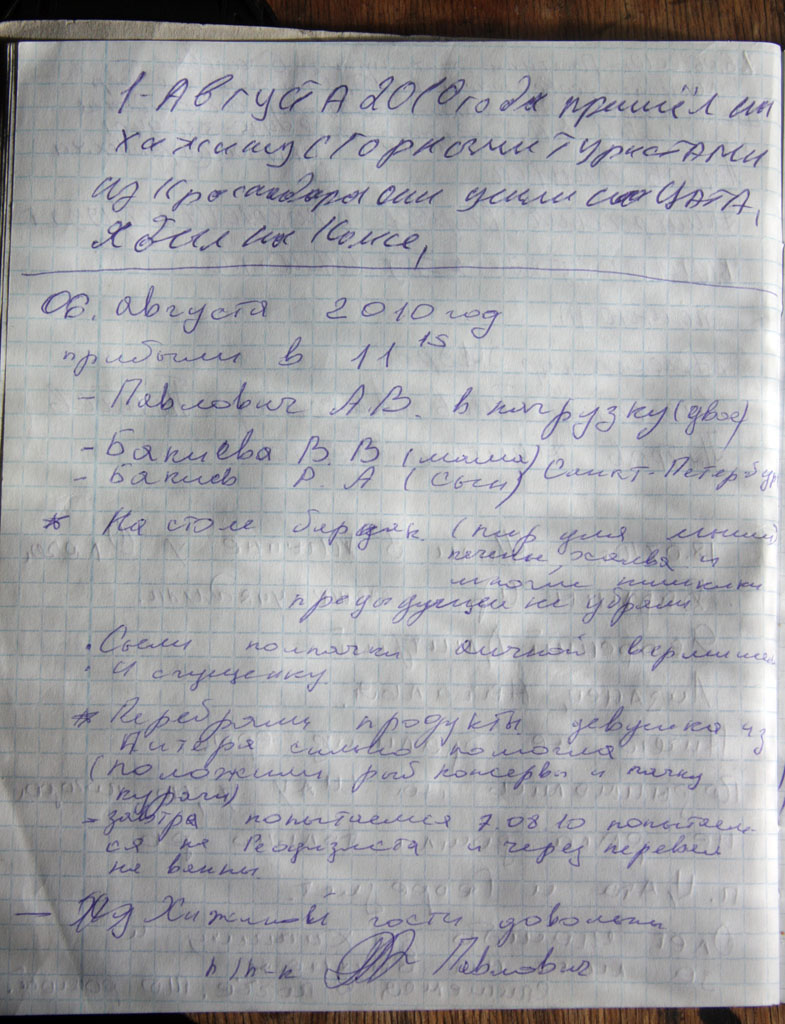 1-Августа 2010 года пришёл на
хижину с горными туристами
из Краснодара они ушли на ЦАТА,
я был на коне,
06. августа 2010 год
прибыли в 11 15
- Павлович А В. в нагрузку (двое)
- Бакиева В. В (мама) Санкт-Петербур
- Бакиев Р. А (сын)
* На столе бардак. (пир для мышей
печенье, халва и
многие
предыдущей не убрали
. Съели полпачки яичной вермишели
: и сгущенку.
* Перебрали продукты девушка из
Питера сильно помогла
(положили рыб консервы и пачку
кураги)
- завтра попытаемся 7.08.10 попытаем-
ся на и через перевал
на ванны.
- Хижиной гости довольны
п/п-к Павлович